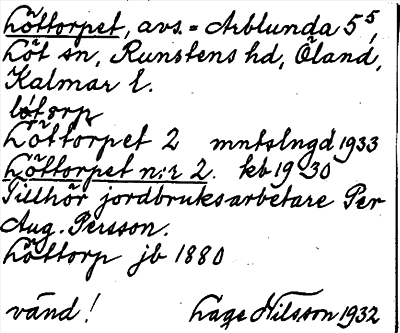 Löttorpet, avs. = Arblunda 5⁵,
Löt sn, Runstens hd, Öland,
Kalmar l.
løtorp
Löttorpet 2 mntslngd 1933
Löttorpet n:r 2. kb 19-30
Tillhör jordbruksarbetare Per
Aug. Persson.
Löttorp jb 1880
vänd! Lage Nilsson 1932